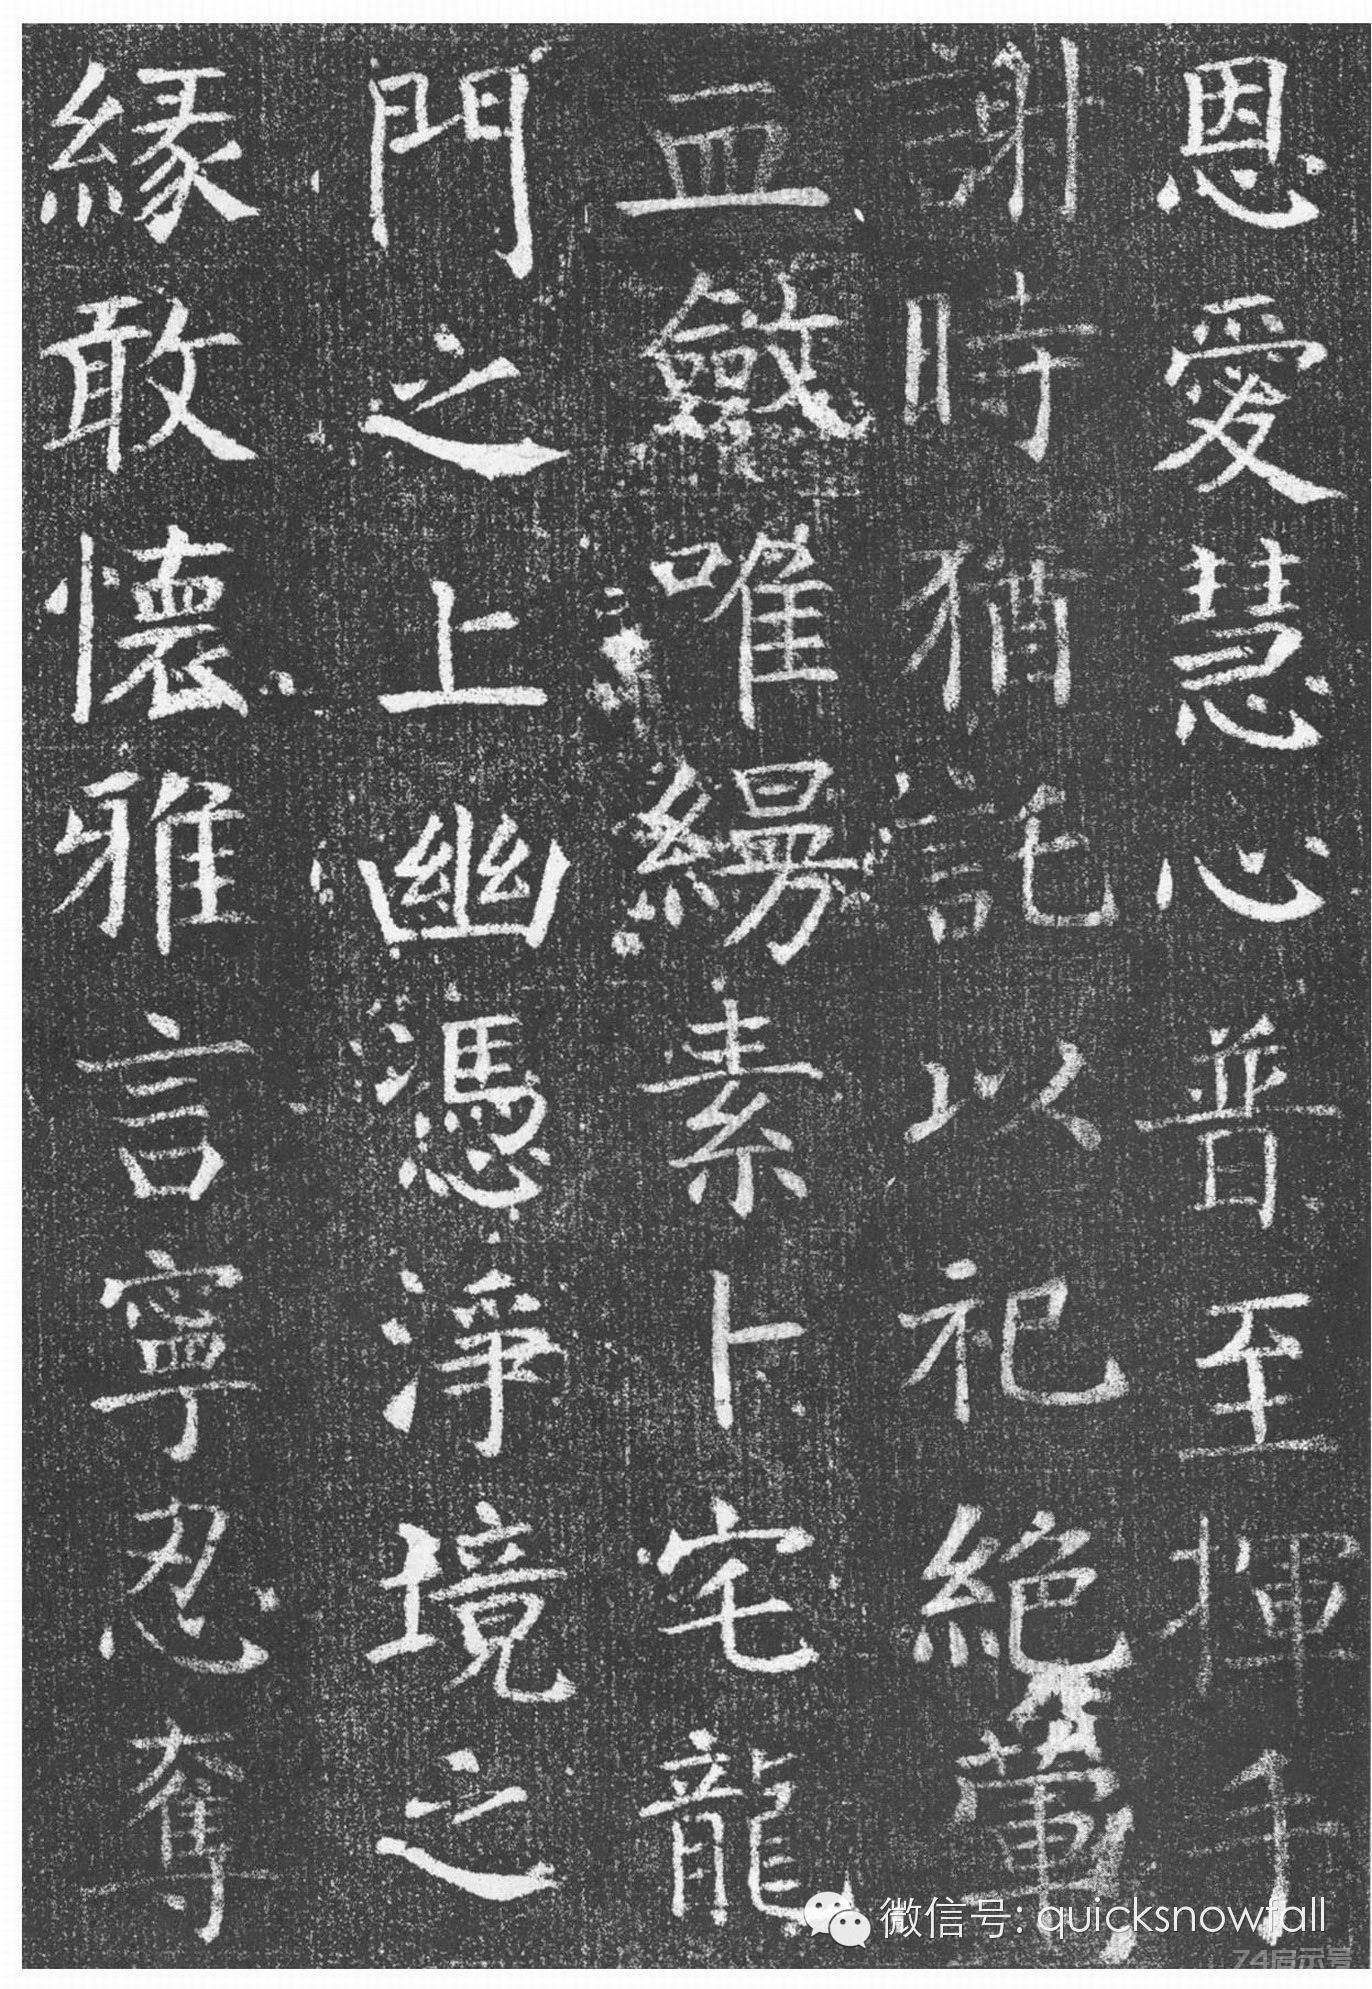 恩愛慧心普至揮手
謝時猶託以祀絕葷
血斂唯縵素卜宅龍
門之上幽憑淨境之
緣敢懷雅言寧忍奪
微信号: quicksnowfall